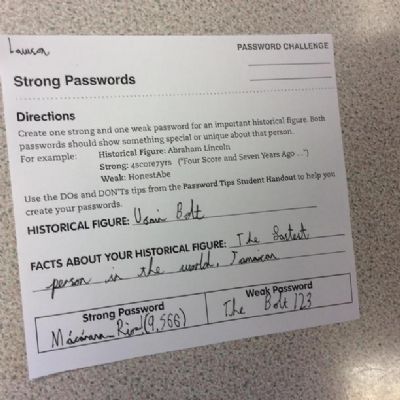 Lawson
PASSWORD CHALLENGE
Strong Passwords
Directions
Create one strong and one weak password for an important historical figure. Both
passwords should show something special or unique about that person.
For example: Historical Figure: Abraham Lincoln
Strong: 4score7yrs ("Four Score and Seven Years Ago . . .")
Weak: HonestAbe
Use the DOs and DON'Ts tips from the Password Tips Student Handout to help you
create your passwords.
HISTORICAL FIGURE: Usain Bolt
FACTS ABOUT YOUR HISTORICAL FIGURE: The fastest
person in the world, Jamaican
Strong Password
(9,566)
Weak Password
The Bolt 123